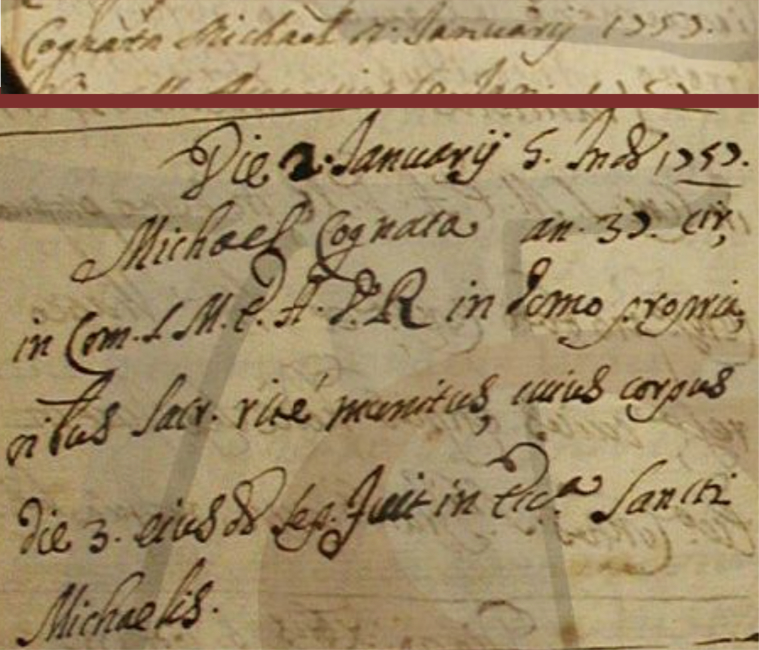 Cognata Michael 2. January 1757.
Die 2. Januarij 5. Ind. 1757.
Michael Cognata an. 37. cir,
in Com. S. M. E. A. D. R in domo propria,
omnibus Sacr. rite munitus, cuius corpus
die 3. eiusd. sep. fuit in Ecc.a Sancti
Michaelis.